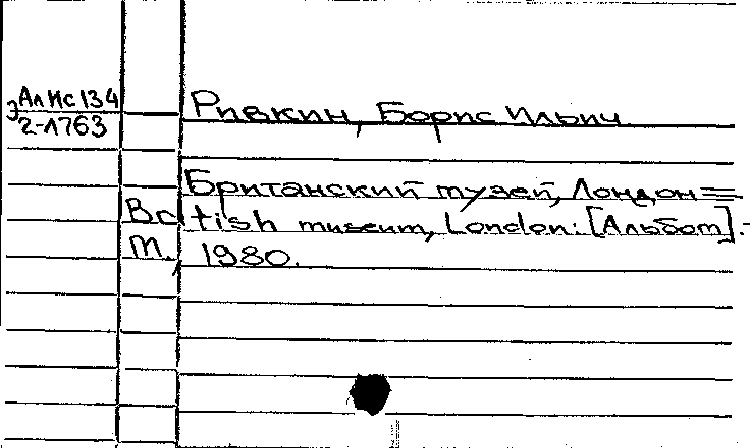 Э АлИс 134
2-1763
Ривкин, Борис Ильич
Британский музей, Лондон =
tish museum, London: [Альбом].-
М, 1980.